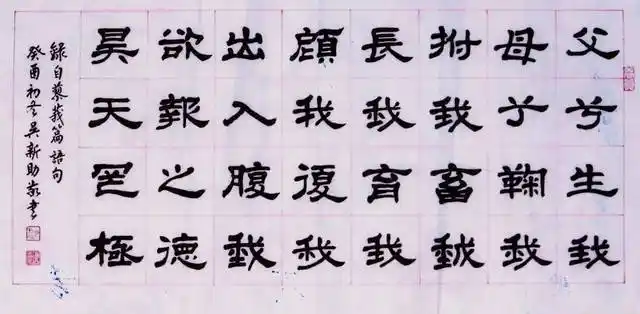 父兮生我
母兮鞠我
拊我畜我
長我育我
顧我復我
出入腹我
欲報之德
昊天罔極
錄自蓼莪篇語句
癸酉初冬吳新助敬書